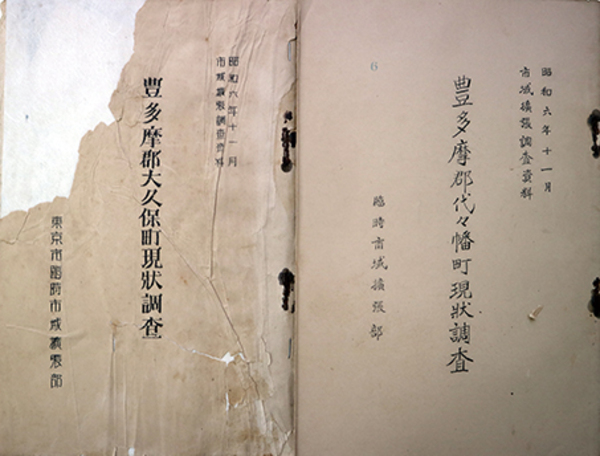 昭和六年十一月
市域擴張調査資料
豊多摩郡大久保町現狀調査
東京市臨時市域擴張部
昭和六年十一月
市域擴張調査資料
豊多摩郡代々幡町現狀調査
臨時市域擴張部
6